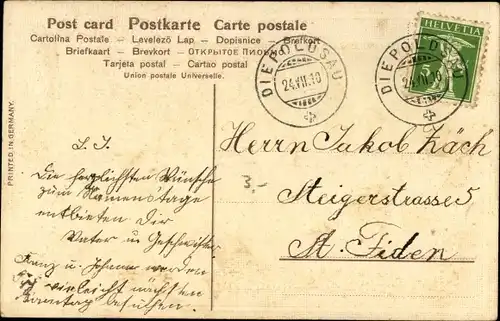 Post card Postkarte Carte postale
Cartolina Postale – Levelező Lap – Dopisnice – Brefkort
Briefkaart – Brevkort – ОТКРЫТОЕ ПИСЬМО
Tarjeta postal – Cartao postal
Union postale Universelle.
HELVETIA
DIEPOLDSAU
24.VII.10
DIEPOLDSAU
PRINTED IN GERMANY.
L. J.
Die herzlichsten Wünsche
zum Namenstage
entbieten Dir
Vater u Geschwister
Franz u. werden
vielleicht nächsten
Sonntag besuchen.
3.-
Herrn Jakob Zäch
Steigerstrasse 5
St. Fiden